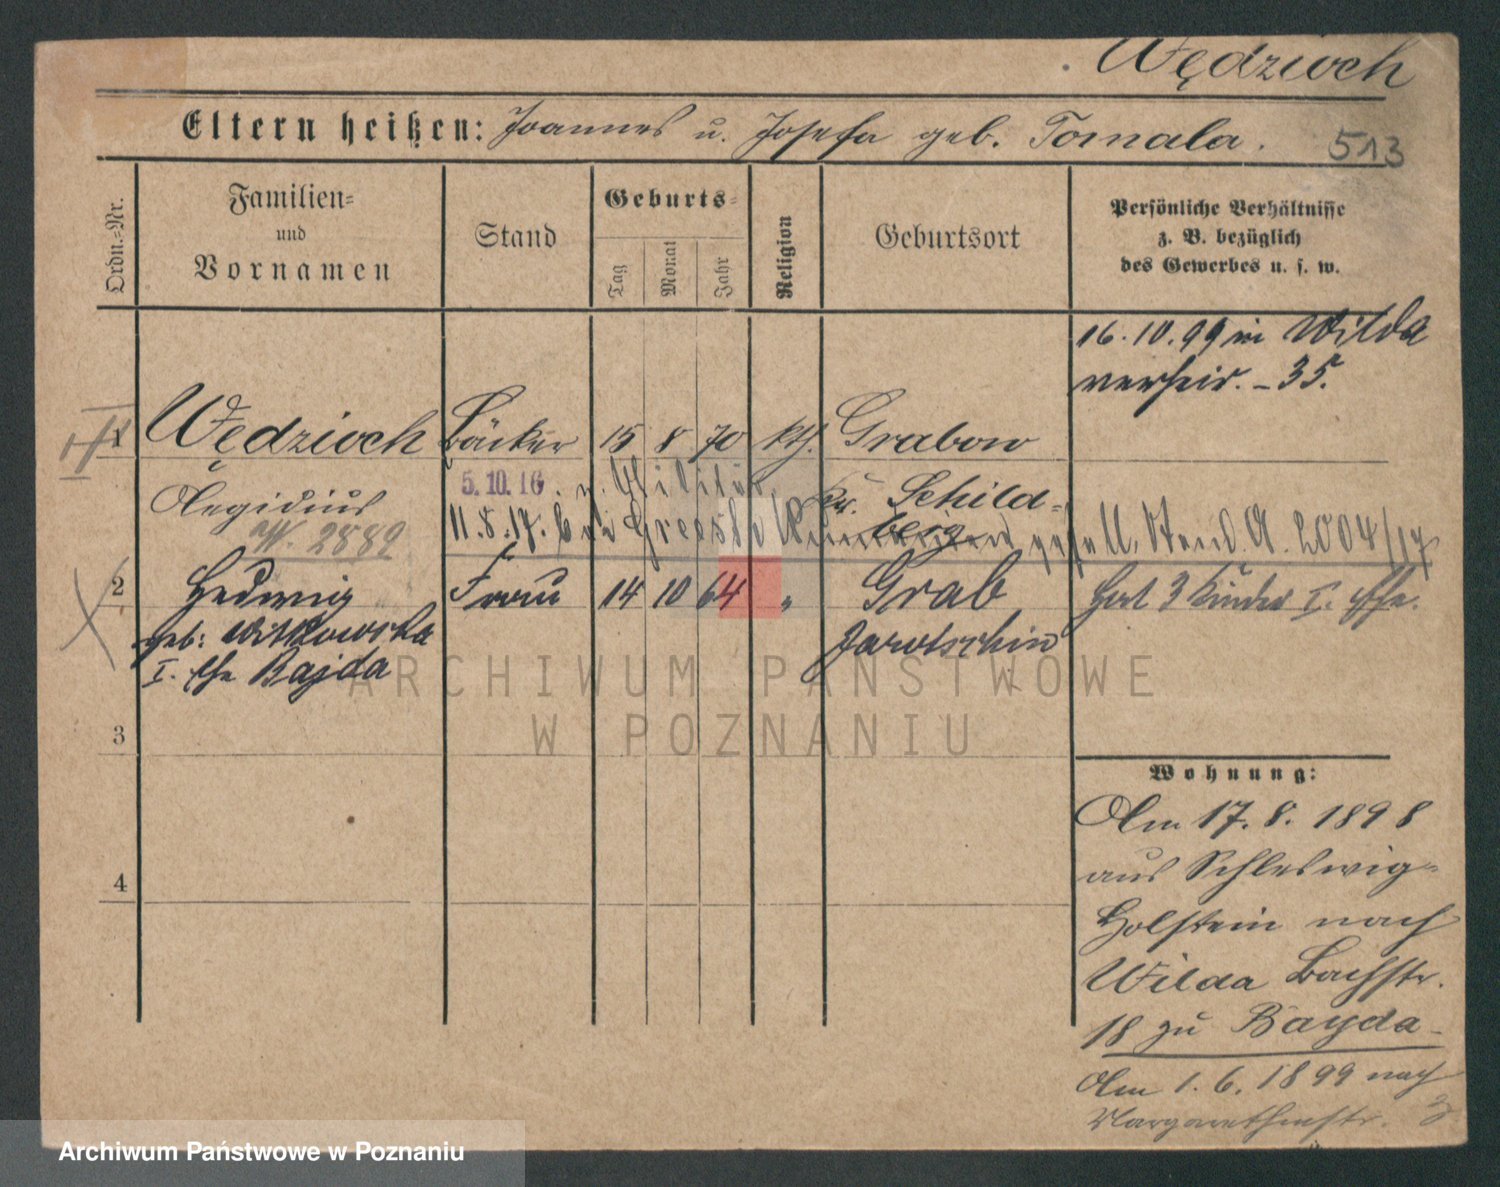 Wędzioch
Eltern heißen: Joannes u. Josefa geb. Tomala.
513
Ordn.-Nr.
Familien-
und
Vornamen
Stand
Geburts-
Tag
Monat
Jahr
Religion
Geburtsort
Persönliche Verhältnisse
z. B. bezüglich
des Gewerbes u. s. w.
16.10.99 in Wilda
verheir. - 35.
1 Wędzioch Bäcker 15 8 70 kth. Grabow
Aegidius
5.10.16. z. Militär
Kr. Schild-
berg
W. 2889
11.8.17. gefall. 2004/17
2 Hedwig Frau 14 10 64 " Grab Hat 3 Kinder I. Ehe.
geb: Witkowska
Jarotschin
I. Ehe Bajda
ARCHIWUM PAŃSTWOWE
W POZNANIU
3
Wohnung:
Am 17.8.1898
aus Schleswig-
Holstein nach
Wilda Bachstr.
18 zu Bayda-
Am 1.6.1899 nach
Margarethenstr. 3
4
Archiwum Państwowe w Poznaniu